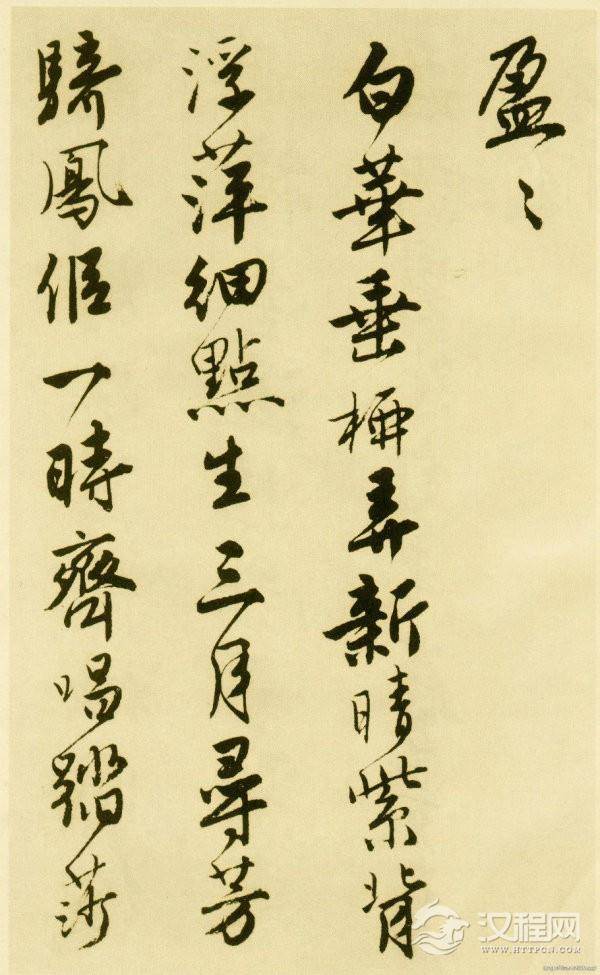 盈〻
白華垂柳弄新晴紫背
浮萍細點生三月尋芳
騎鳳侶一時齊唱踏莎
汉程网
HTTPCN.COM